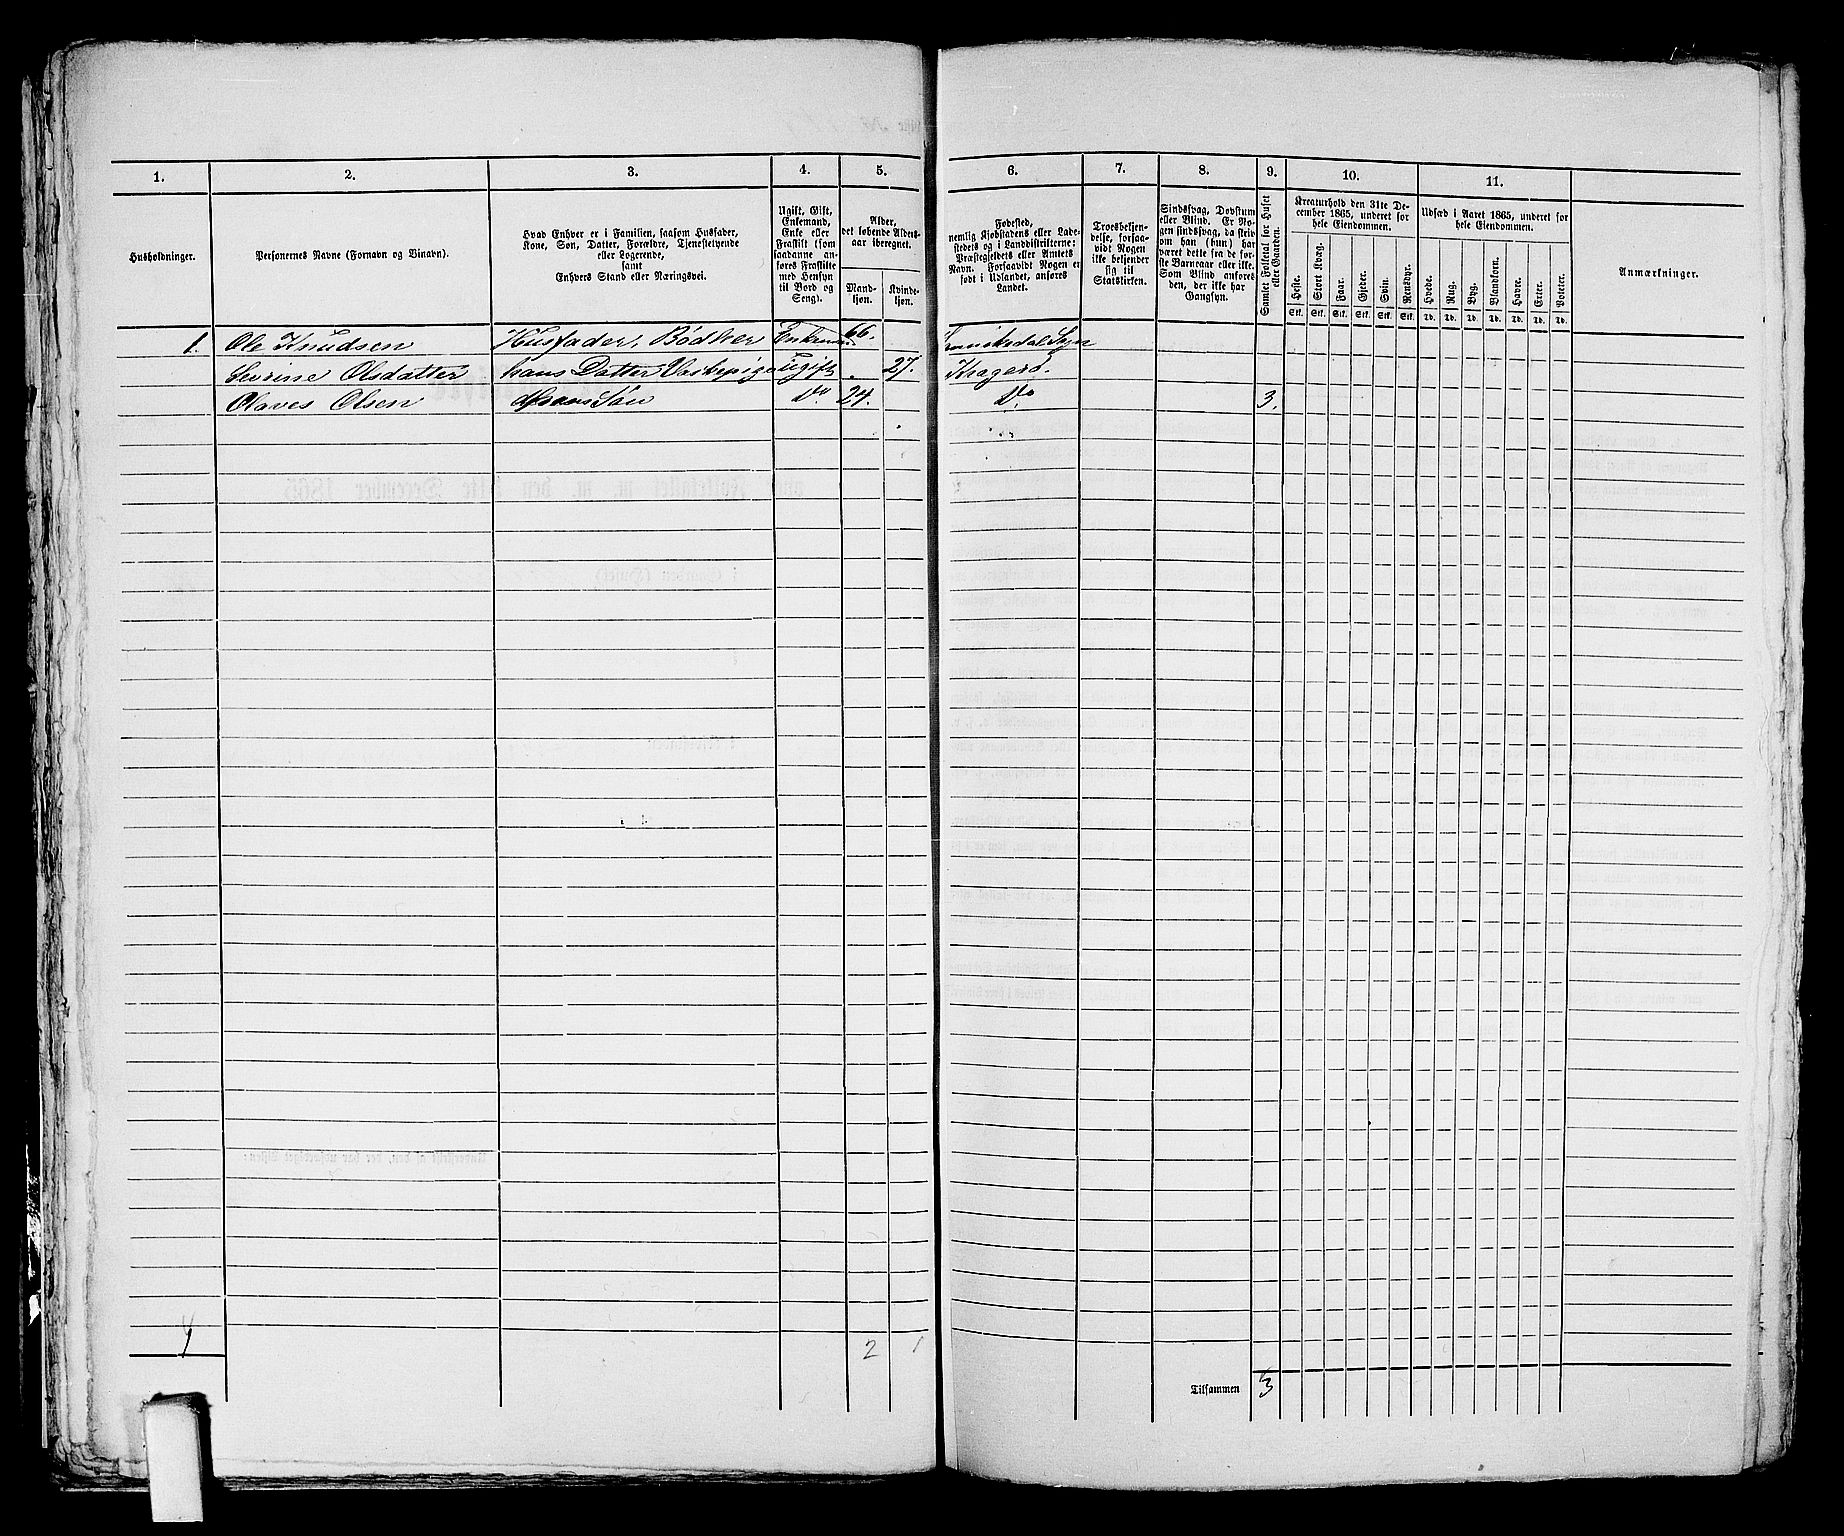 1. 2. 3. 4. 5. 6. 7. 8. 9. 10. 11.
Husholdninger.
Personernes Navne (Fornavn og Vinavn).
Hvad Enhver er i Familien, saasom Husfader,
Kone, Søn, Datter, Forældre, Tjenestetyende
eller Logerende,
samt
Enhvers Stand eller Næringsvei.
Ugift, Gift,
Enkemand,
Enke eller
Fraskilt (som
saadanne an-
føres Fraskilte
med Hensyn
til Bord og
Seng).
Alder,
det løbende Alders-
aar iberegnet.
Mand-
kjøn.
Kvinde-
kjøn.
Fødested,
nemlig Kjøbstadens eller Lade-
stedets og i Landdistrikterne:
Præstegjeldets eller Amtets
Navn. Forsaavidt Nogen er
født i Udlandet, anføres
Landet.
Troesbekjen-
delse, forsaa-
vidt Nogen
ikke bekjender
sig til
Statskirken.
Sindssvag, Døvstum
eller Blind. Er No-
gen sindssvag, da skriv
om han (hun) har
været dette fra de før-
ste Barneaar eller ikke.
Som Blind anføres
den, der ikke har
Gangsyn.
Samlet Folketal for Huset
eller Gaarden.
Kreaturhold den 31te De-
cember 1865, underet for
hele Eiendommen.
Heste. Stort Kvæg. Faar. Gjeder. Svin. Rensdyr.
Stk. Stk. Stk. Stk. Stk. Stk.
Udsæd i Aaret 1865, underet for
hele Eiendommen.
Hvede. Rug. Byg. Blandkorn. Havre. Erter. Poteter.
Td. Td. Td. Td. Td. Td. Td.
Anmærkninger.
1. Ole Knudsen Husfader, Bødker 66.
Sevrine Olsdatter hans Datter ugift 27. Kragerø.
Olaves Olsen Søn Do. 24. Do 3.
2 1
Tilsammen 3